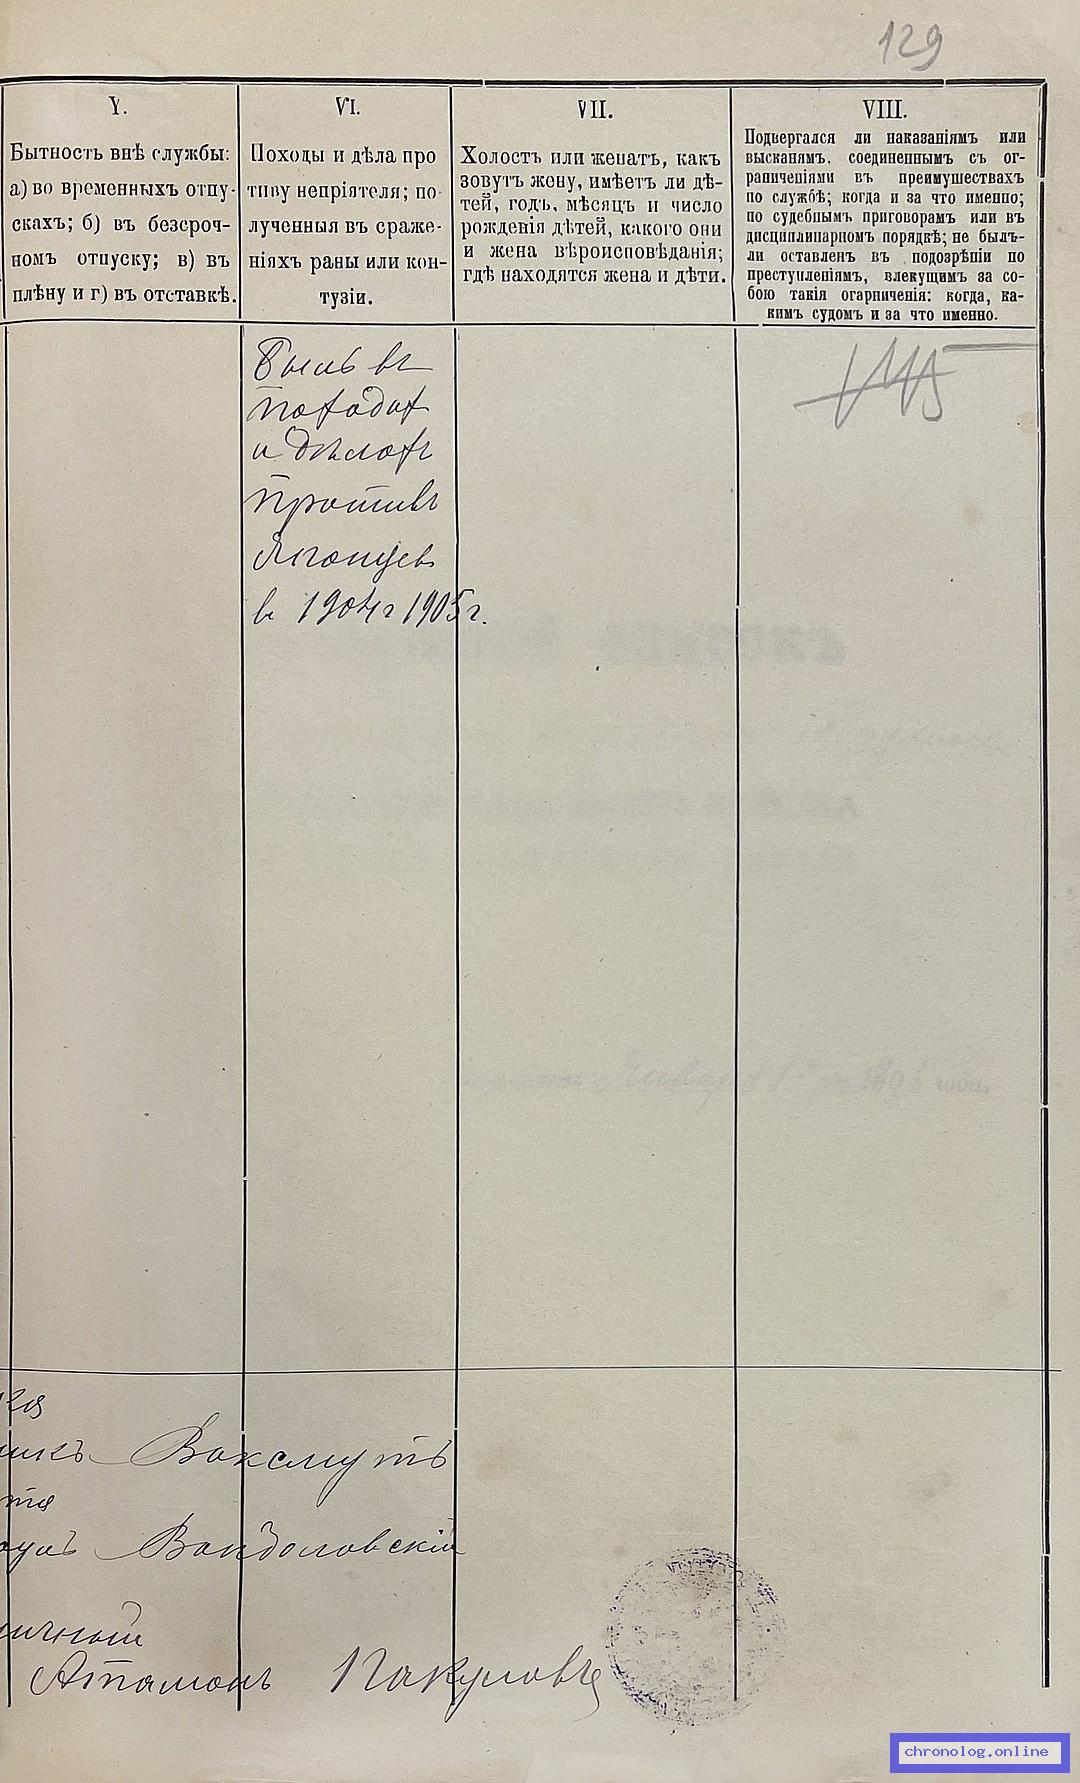 129
Y.
Бытность внѣ службы:
а) во временныхъ отпу-
скахъ; б) въ безсроч-
номъ отпуску; в) въ
плѣну и г) въ отставкѣ.
VI.
Походы и дѣла про
тиву непріятеля; по
лученныя въ сраже-
ніяхъ раны или кон-
тузіи.
VII.
Холостъ или женатъ, какъ
зовутъ жену, имѣетъ ли дѣ-
тей, годъ, мѣсяцъ и число
рожденія дѣтей, какого они
и жена вѣроисповѣданія;
гдѣ находятся жена и дѣти.
VIII.
Подвергался ли наказаніямъ или
высканямъ, соединеннымъ съ ог-
раниченіями въ преимуществахъ
по службѣ; когда и за что именно;
по судебнымъ приговорамъ или въ
дисциплинарномъ порядкѣ; не былъ-
ли оставленъ въ подозрѣніи по
преступленіямъ, влекущимъ за со-
бою такія огарниченія: когда, ка-
кимъ судомъ и за что именно.
Былъ въ
походах
и дѣлахъ
противъ
Японцев
в 1904 г 1905 г.
Ваксмутъ
Вандаловскій
Атаманъ
chronolog.online